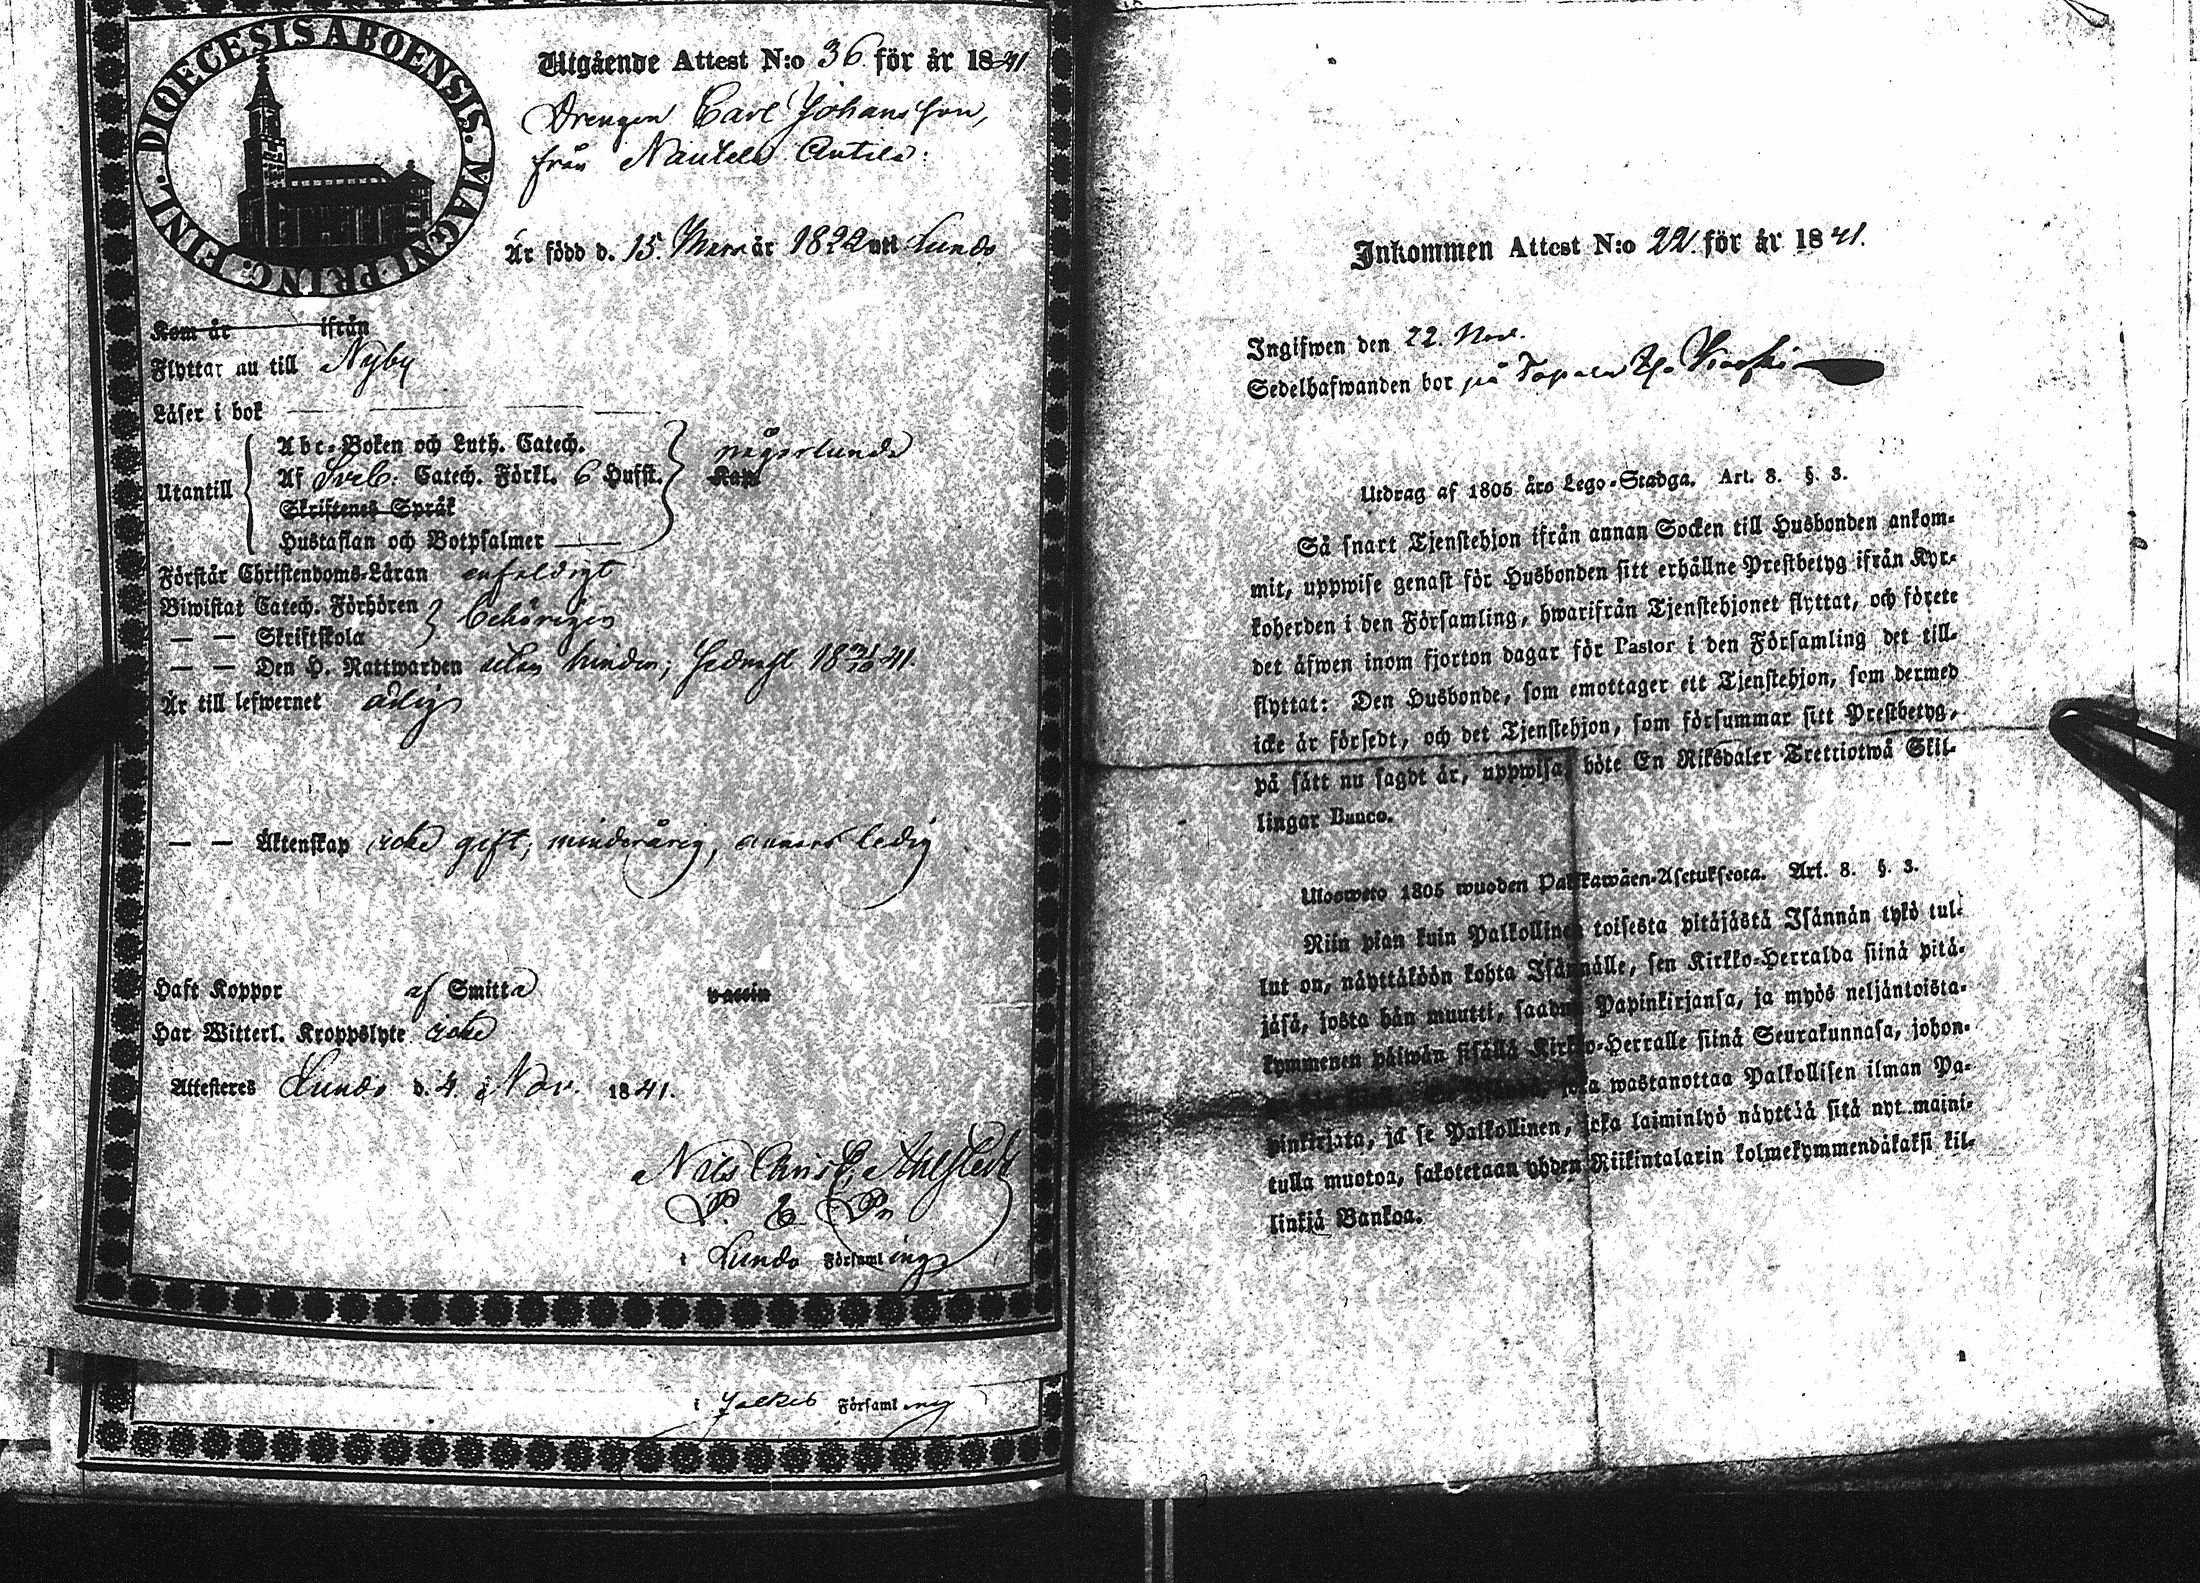 DIOECESIS ABOENSIS. MAGNI PRINC: FINL.
Utgående Attest N:o 36 för år 1841
Drengen Carl Johansson,
från Nautela Antila.
Är född d. 15. Mars år 1822 uti Lundo
Kom år ifrån
Flyttar nu till Nyby
Läser i bok
Abc-Boken och Luth. Catech.
någorlunda
Utantill
Af Sveb: Catech. Förkl. 6 Hufst.
Kap.
Skriftenes Språk
Hustaflan och Botpsalmer
Förstår Christendoms-Läran enfaldigt
Biwistat Catech. Förhören
— — Skriftskola
behörigen
— — Den H. Nattwarden sednast 18 41.
Är till lefwernet ärlig
— — Äktenskap icke gift, minderårig, annars ledig
Haft Koppor af Smitta vaccin
Har Witterl. Kroppslyte icke
Attesteres Lundo d. 4. Nov. 1841.
Nils Christ. Ahlstedt
P. &
i Lundo Församling
i Församling
Inkommen Attest N:o 22. för år 1841.
Ingifwen den 22. Nov.
Sedelhafwanden bor på
Utdrag af 1805 års Lego-Stadga. Art. 8. §. 3.
Så snart Tjenstehjon ifrån annan Socken till Husbonden ankom-
mit, uppwise genast för Husbonden sitt erhållne Prestbetyg ifrån Kyr-
koherden i den Församling, hwarifrån Tjenstehjonet flyttat, och förete
det äfwen inom fjorton dagar för Pastor i den Församling det till-
flyttat: Den Husbonde, som emottager ett Tjenstehjon, som dermed
icke är försedt, och det Tjenstehjon, som försummar sitt Prestbetyg,
på sätt nu sagdt är, uppwisa, böte En Riksdaler Trettiotwå Skil-
lingar Banco.
Ulosweto 1805 wuoden Palkkawäen-Asetuksesta. Art. 8. §. 3.
Niin pian kuin Palkollinen toisesta pitäjästä Isännän tykö tul-
lut on, näyttäköön kohta Isännälle, sen Kirkko-Herralda siinä pitä-
jäsä, josta hän muutti, saadun Papinkirjansa, ja myös neljäntoista-
kymmenen päiwän sisällä Kirkko-Herralle siinä Seurakunnasa, johon-
joka wastanottaa Palkollisen ilman Pa-
pinkirjata, ja se Palkollinen, joka laiminlyö näyttää sitä nyt maini-
tulla muotoa, sakotetaan yhden Riikintalarin kolmekymmendäkaksi kil-
linkiä Bankoa.